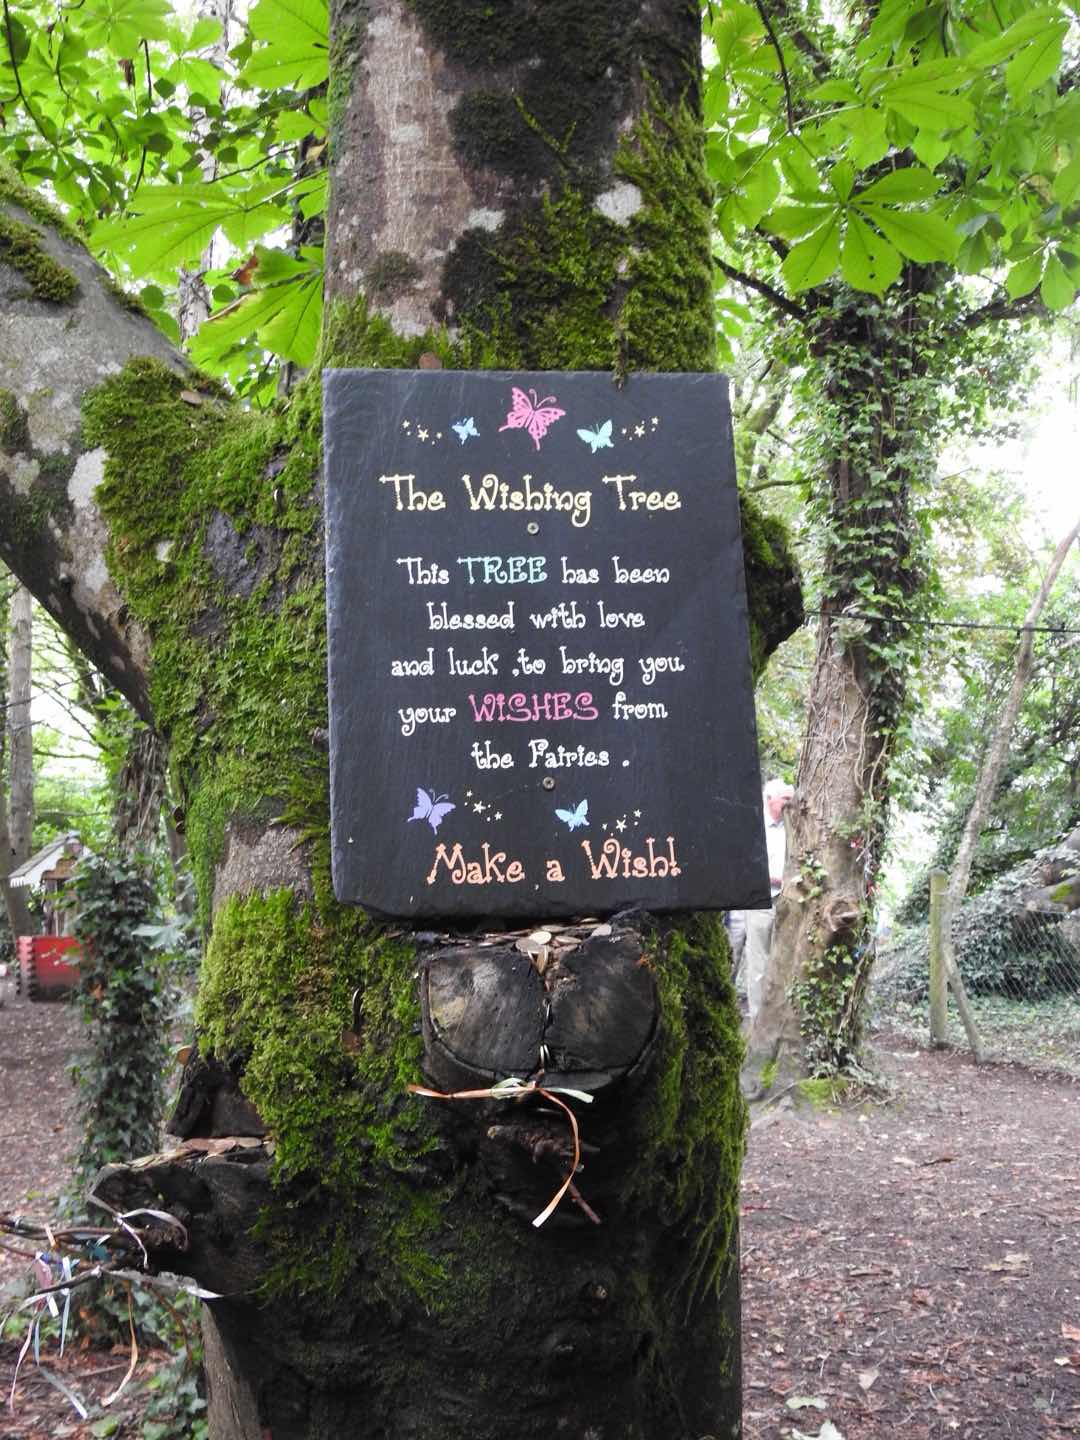 The Wishing Tree
This TREE has been
blessed with love
and luck ,to bring you
your WISHES from
the Fairies .
Make a Wish!